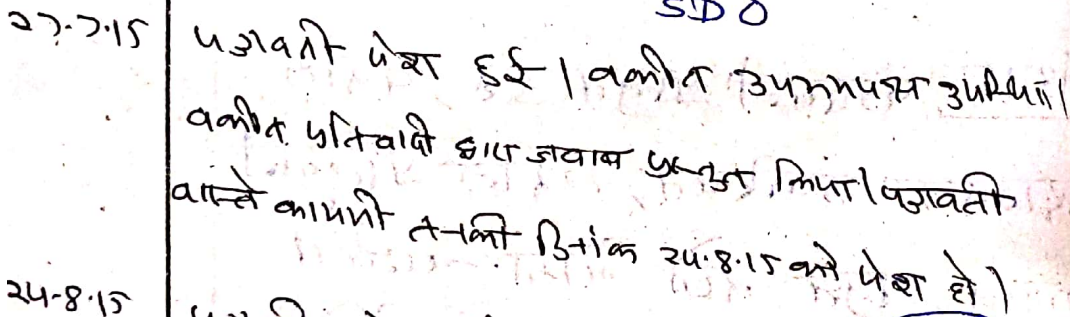 SDO
27.7.15 पत्रावली पेश हुई। वकील उभयपक्ष उपस्थित।
वकील प्रतिवादी द्वारा जवाब प्रस्तुत किया। पत्रावली
वास्ते कायमी तनकी दिनांक 24.8.15 को पेश हो।
24.8.15